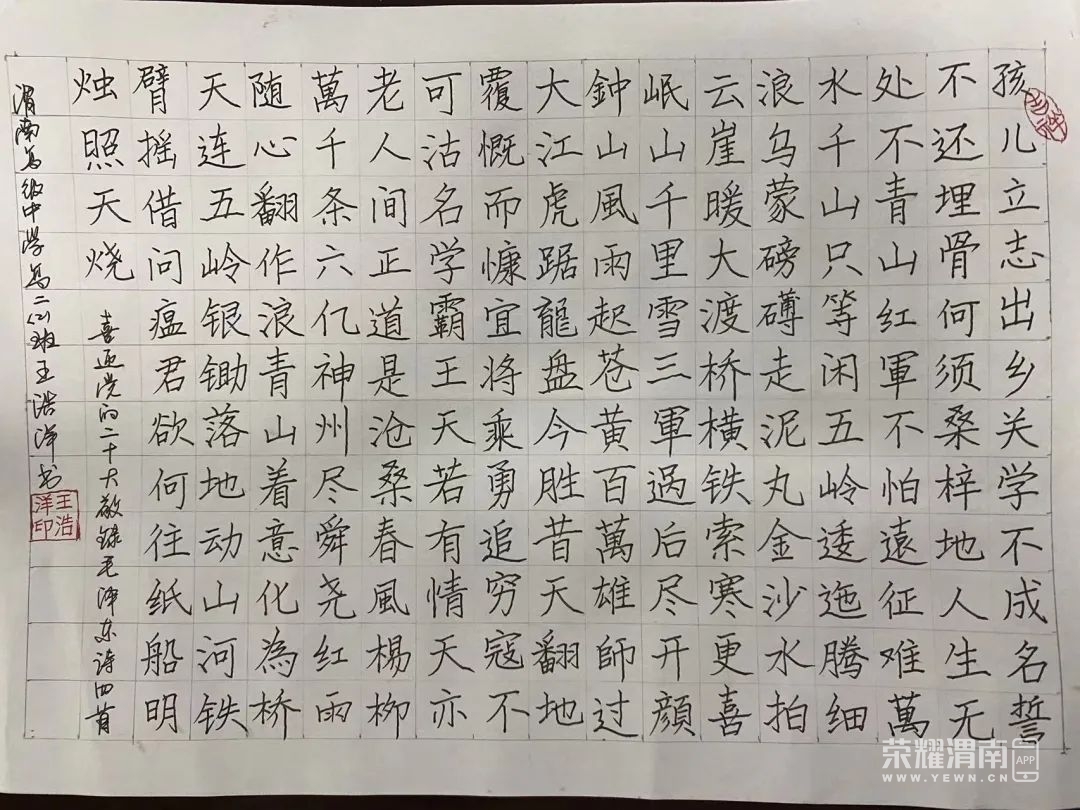 孩儿立志出乡关学不成名誓
不还埋骨何须桑梓地人生无
处不青山红軍不怕遠征难萬
水千山只等闲五岭逶迤腾细
浪乌蒙磅礴走泥丸金沙水拍
云崖暖大渡桥横铁索寒更喜
岷山千里雪三軍过后尽开顔
鐘山風雨起苍黄百萬雄師过
大江虎踞龍盘今胜昔天翻地
覆慨而慷宜将乘勇追穷寇不
可沽名学霸王天若有情天亦
老人间正道是沧桑春風楊柳
萬千条六亿神州尽舜尧红雨
随心翻作浪青山着意化為桥
天连五岭银锄落地动山河铁
臂摇借问瘟君欲何往纸船明
烛照天烧
喜迎党的二十大敬錄毛泽东诗四首
渭南高级中学高二(2)班王浩洋书
王浩洋印
荣耀渭南APP
WWW.YEWN.CN